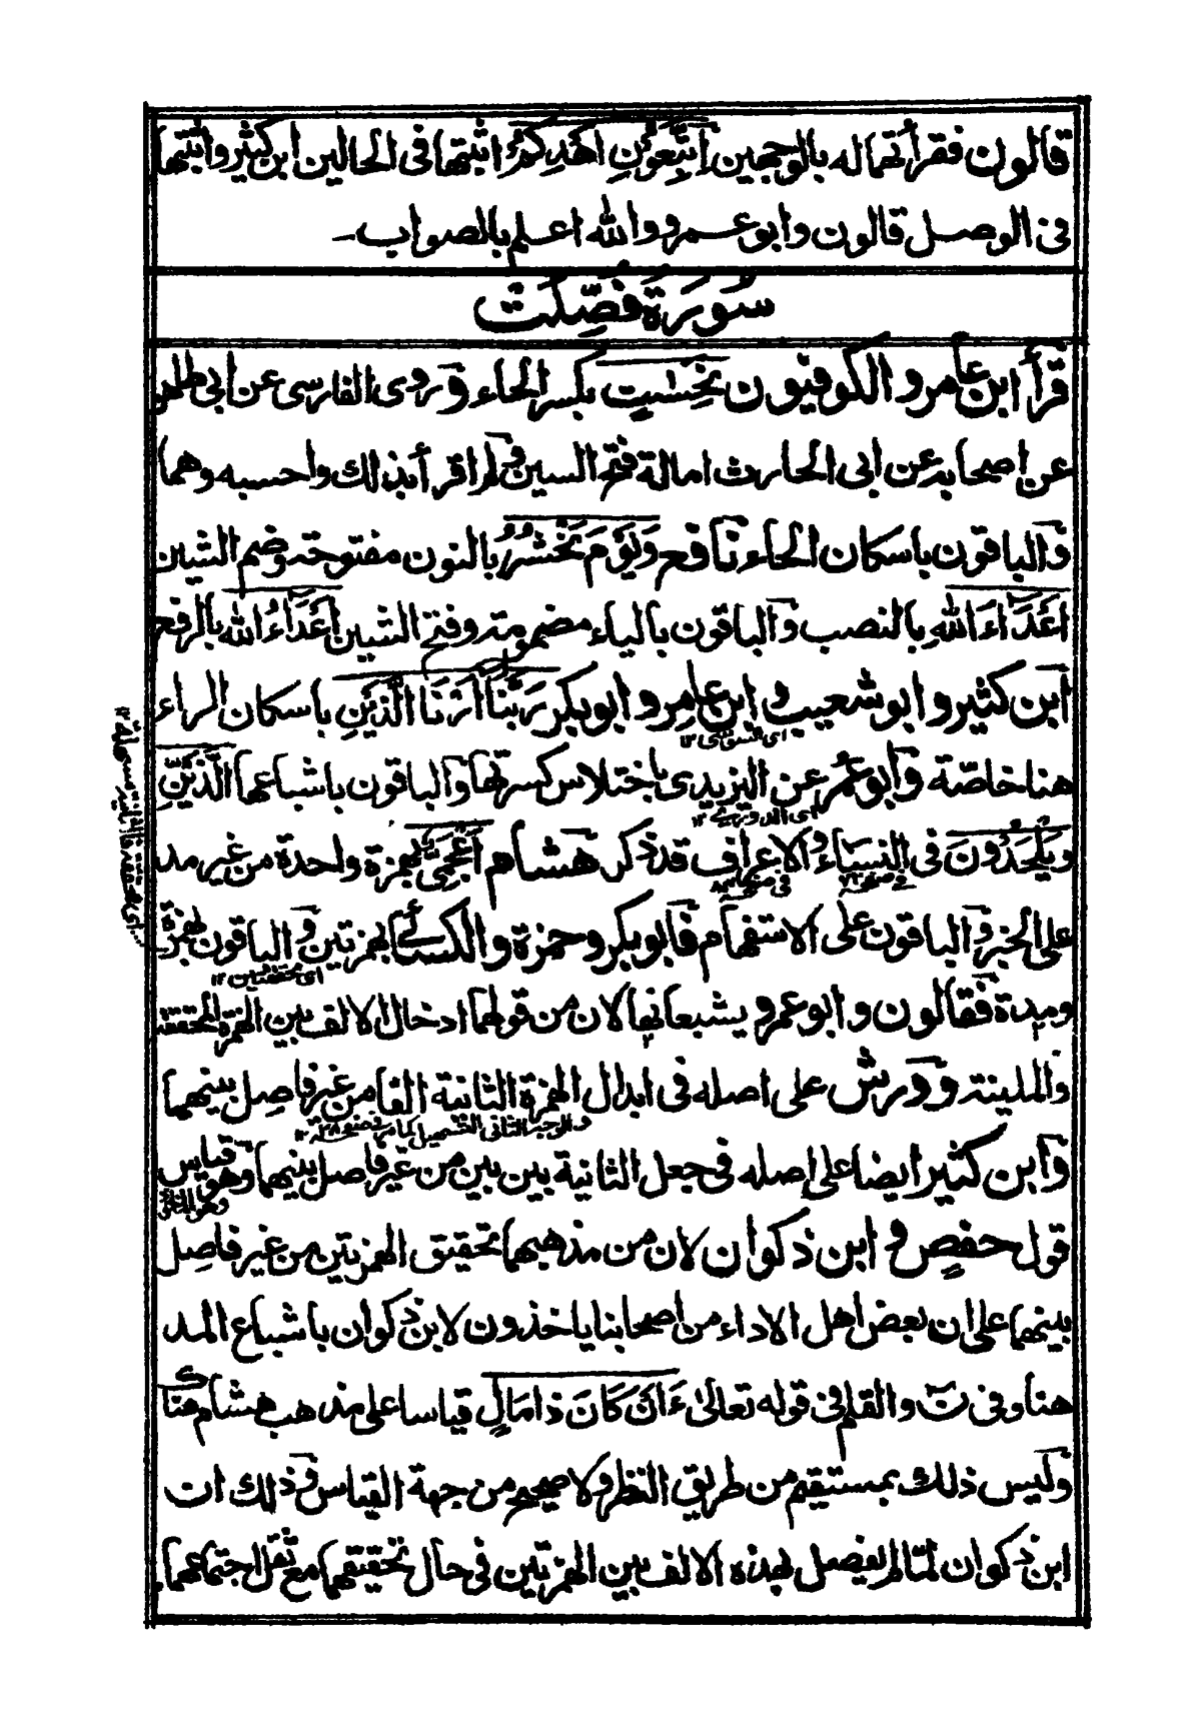 قالون فقرأتهما له بالوجهين اتَّبِعُونِ اَهْدِكُمْ اثبتها فى الحالين ابن كثير واثبتها
فى الوصل قالون وابو عمرو والله اعلم بالصواب۔
سُورَةُ فُصِّلَتْ
قرأ ابن عامر والكوفيون نَحِسَاتٍ بكسر الحاء وروى الفارسى عن ابى طاهر
عن اصحابه عن ابى الحارث امالة فتحة السين ولم اقرأ بذلك واحسبه وهما
والباقون باسكان الحاء نافع وَيَوْمَ نَحْشُرُ بالنون مفتوحة وضم الشين
اَعْدَاءَ اللهِ بالنصب والباقون بالياء مضمومة وفتح الشين اَعْدَاءُ الله بالرفع
ابن كثير وابو شعيب وابن عامر وابو بكر رَبَّنَا اَرْنَا الَّذَيْنِ باسكان الراء
اى السوسى ١٢
هنا خاصّة وابو عمر عن اليزيدى باختلاس كسرتها والباقون باشباعها الَّذَيْنِّ
اى الدورى ١٢
ويَلْحَدُونَ فى النساء والاعراف قد ذكر هشام اَعْجَمِىٌّ بهمزة واحدة من غير مد
على الخبر والباقون على الاستفهام فابو بكر وحمزة والكسائى بهمزتين والباقون بهمزة
اى محققتين ١٢
ومدة فقالون وابو عمرو يشبعانها لان من قولهما ادخال الالف بين الهمزة المحققة
والملينة وورش على اصله فى ابدال الهمزة الثانية الفا من غير فاصل بينهما
وابن كثير ايضا على اصله فى جعل الثانية بين بين من غير فاصل بينهما وهو قياس
قول حفص وابن ذكوان لان من مذهبهما تحقيق الهمزتين من غير فاصل
بينهما على ان بعض اهل الاداء من اصحابنا ياخذون لابن ذكوان باشباع المد
هنا وفى نٓ والقلم فى قوله تعالىٰ ءَاَنْ كَانَ ذَا مَالٍ قياسا على مذهب هشام هنا
وليس ذلك بمستقيم من طريق النظر ولا صحيح من جهة القياس وذلك ان
ابن ذكوان لمّا لم يفصل بهذه الالف بين الهمزتين فى حال تحقيقهما مع ثقل اجتماعهما